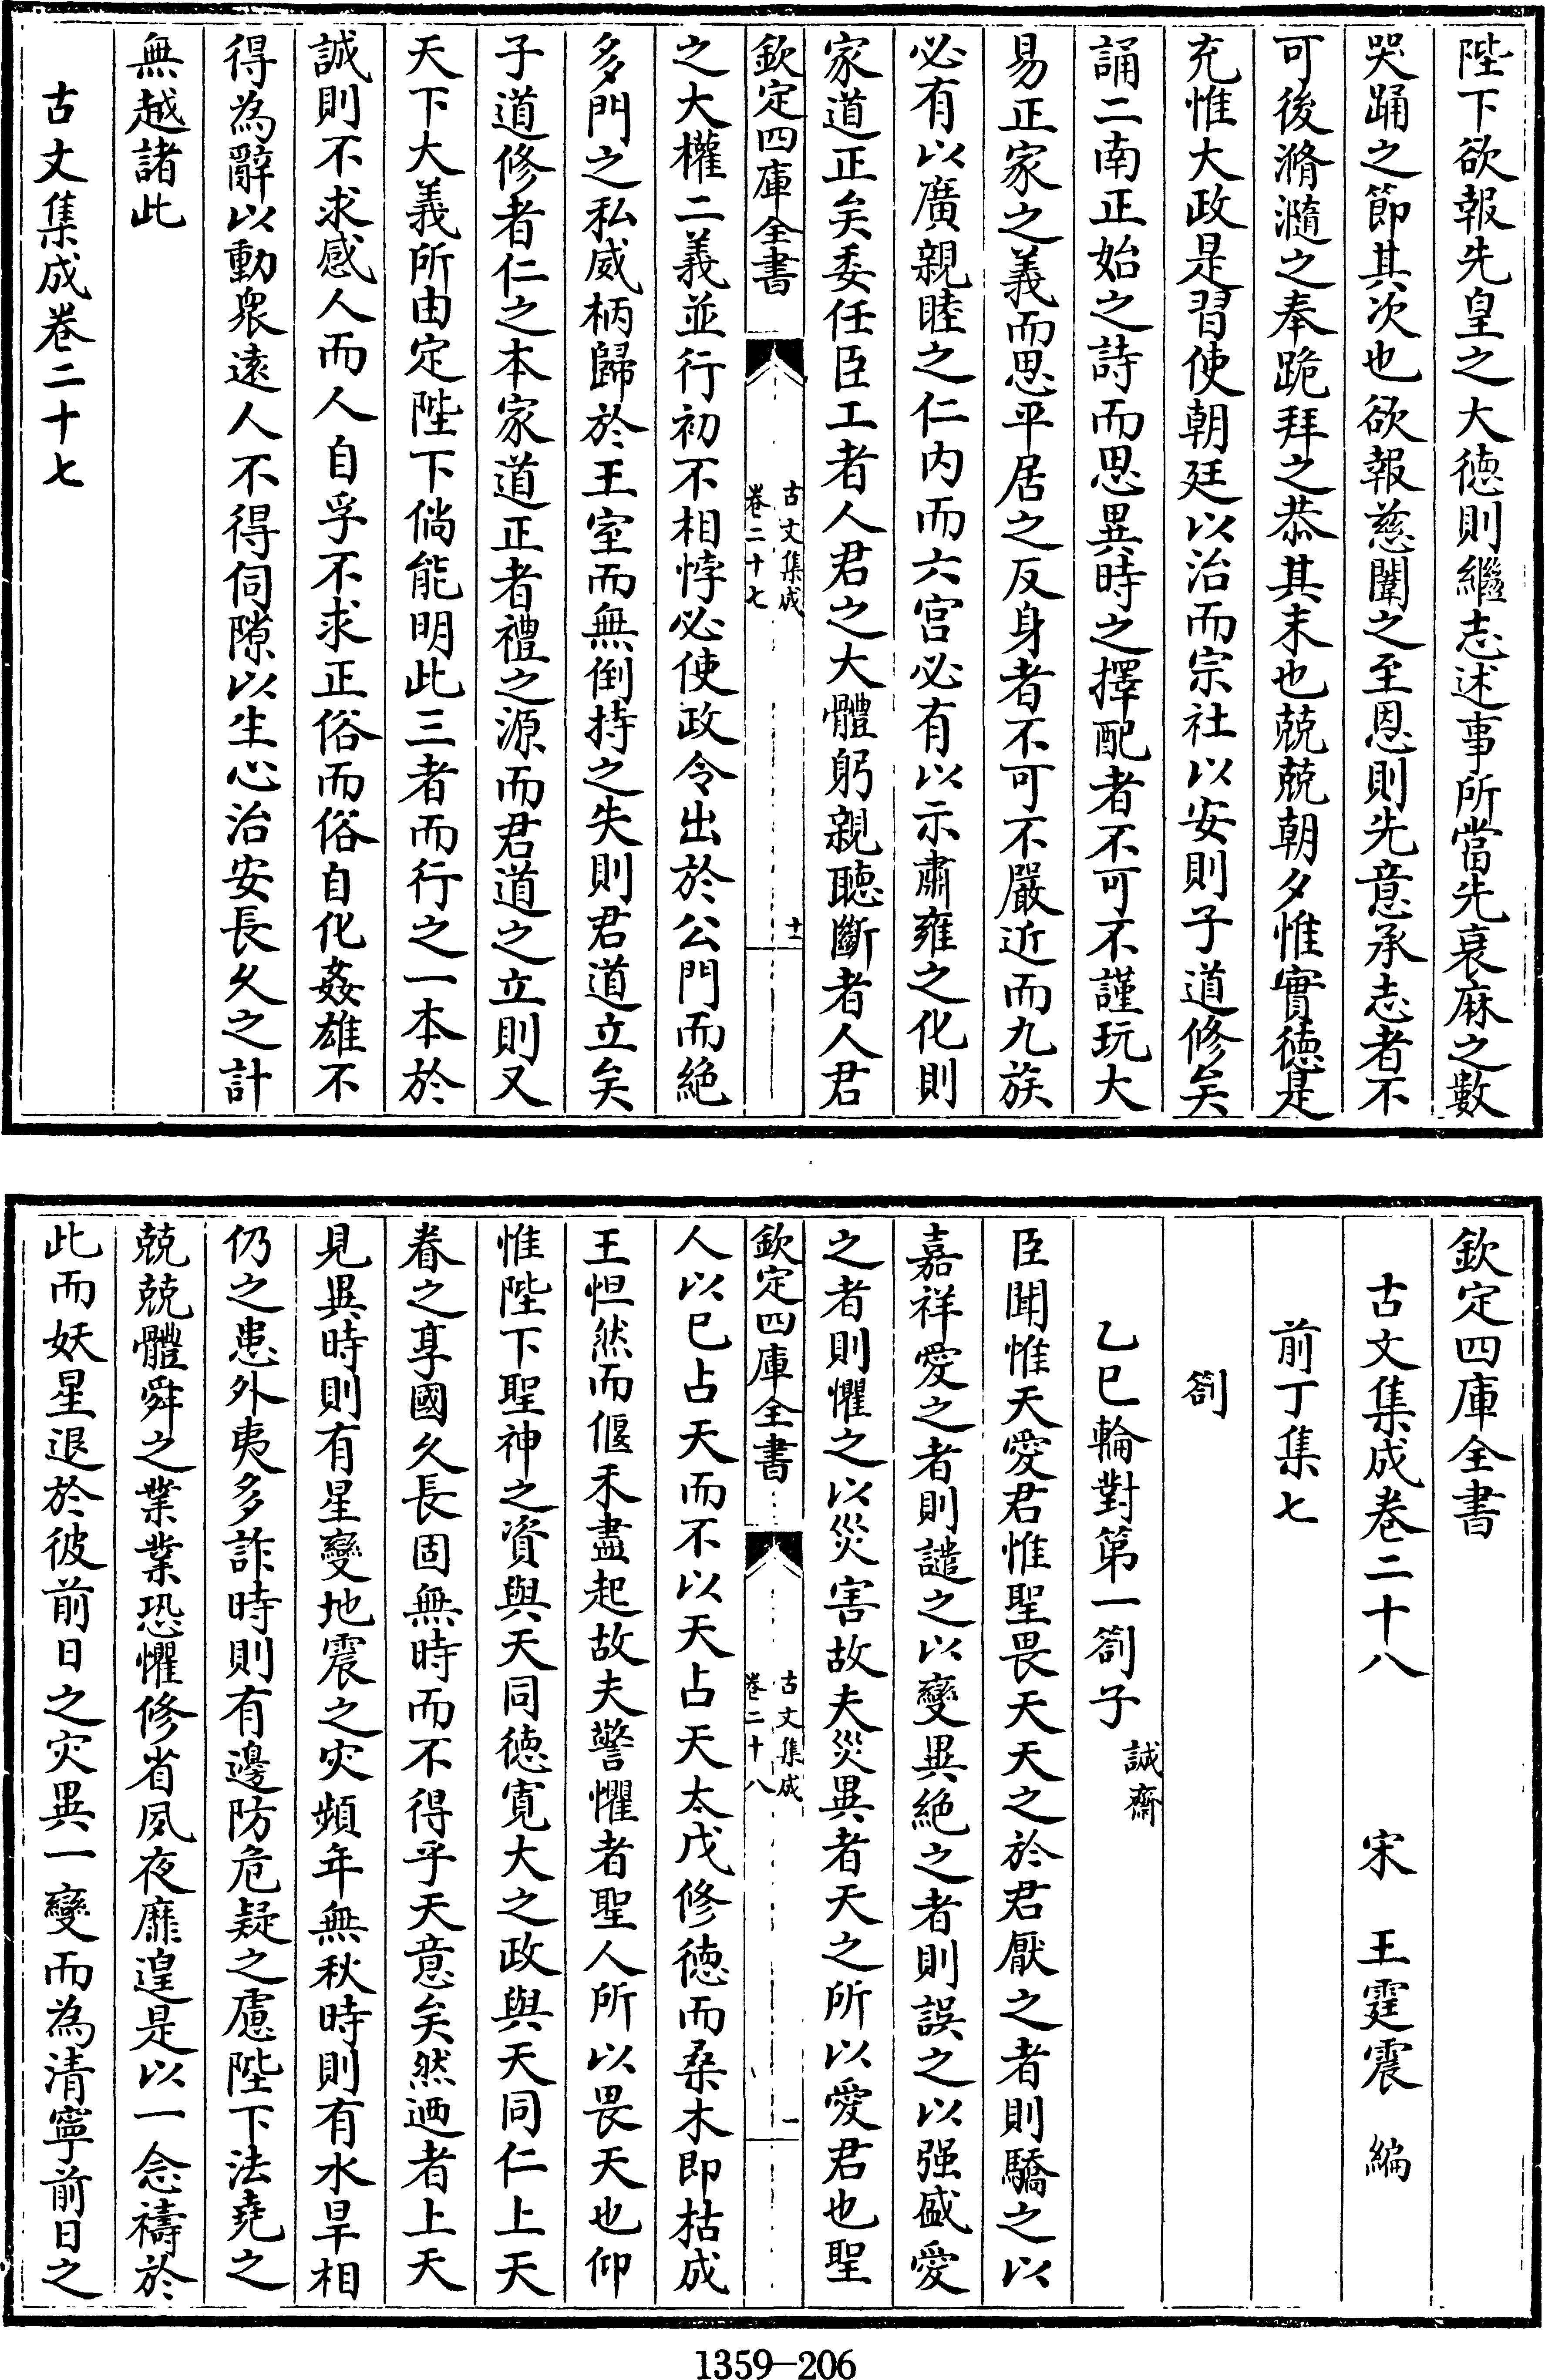 陛下欲報先皇之大德則繼志述事所當先衰麻之數
哭踊之節其次也欲報慈闈之至恩則先意承志者不
可後滫瀡之奉跪拜之恭其末也兢兢朝夕惟實德是
充惟大政是習使朝廷以治而宗社以安則子道修矣
誦二南正始之詩而思異時之擇配者不可不謹玩大
易正家之義而思平居之反身者不可不嚴近而九族
必有以廣親睦之仁内而六宫必有以示肅雍之化則
家道正矣委任臣工者人君之大體躬親聽斷者人君
欽定四庫全書
古文集成
卷二十七
十一
之大權二義並行初不相悖必使政令出於公門而絶
多門之私威柄歸於王室而無倒持之失則君道立矣
子道修者仁之本家道正者禮之源而君道之立則又
天下大義所由定陛下倘能明此三者而行之一本於
誠則不求感人而人自孚不求正俗而俗自化姦雄不
得為辭以動衆遠人不得伺隙以生心治安長久之計
無越諸此
古文集成卷二十七
欽定四庫全書
古文集成卷二十八 宋 王霆震 編
前丁集七
劄
乙巳輪對第一劄子 誠齋
臣聞惟天愛君惟聖畏天天之於君厭之者則驕之以
嘉祥愛之者則譴之以變異絶之者則誤之以强盛愛
之者則懼之以災害故夫災異者天之所以愛君也聖
欽定四庫全書
古文集成
卷二十八
一
人以已占天而不以天占天太戊修德而桑木即枯成
王怛然而偃禾盡起故夫警懼者聖人所以畏天也仰
惟陛下聖神之資與天同德寛大之政與天同仁上天
眷之享國久長固無時而不得乎天意矣然迺者上天
見異時則有星變地震之灾頻年無秋時則有水旱相
仍之患外夷多詐時則有邊防危疑之慮陛下法堯之
兢兢體舜之業業恐懼修省夙夜靡遑是以一念禱於
此而妖星退於彼前日之灾異一變而為清寧前日之
1359-206